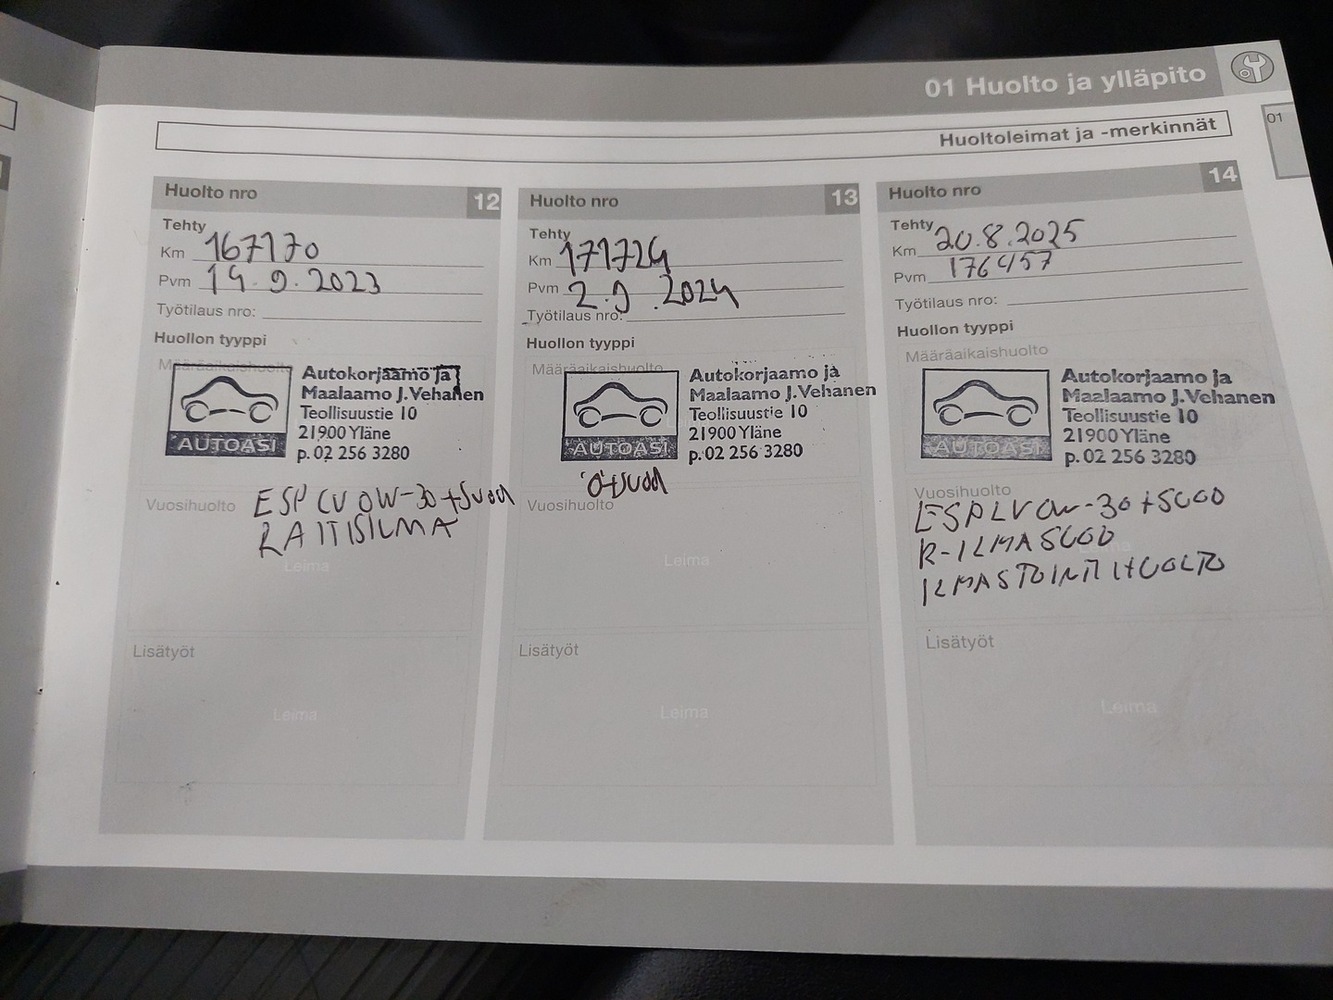 01 Huolto ja ylläpito
01
Huoltoleimat ja -merkinnät
Huolto nro 12
Tehty
Km 167170
Pvm 14.9.2023
Työtilaus nro:
Huollon tyyppi
Määräaikaishuolto
AUTOASI
Autokorjaamo ja
Maalaamo J.Vehanen
Teollisuustie 10
21900 Yläne
p. 02 256 3280
Vuosihuolto
ESP LV 0W-30 + SUOD
RAITISILMA
Leima
Lisätyöt
Leima
Huolto nro 13
Tehty
Km 171724
Pvm 2.9.2024
Työtilaus nro:
Huollon tyyppi
Määräaikaishuolto
AUTOASI
Autokorjaamo ja
Maalaamo J.Vehanen
Teollisuustie 10
21900 Yläne
p. 02 256 3280
Ö+suod
Vuosihuolto
Leima
Lisätyöt
Leima
Huolto nro 14
Tehty
Km 20.8.2025
Pvm 176457
Työtilaus nro:
Huollon tyyppi
Määräaikaishuolto
AUTOASI
Autokorjaamo ja
Maalaamo J.Vehanen
Teollisuustie 10
21900 Yläne
p. 02 256 3280
Vuosihuolto
ESP LV 0W-30 + SUOD
R-ILMASUOD
Leima
ILMASTOINTIHUOLTO
Lisätyöt
Leima